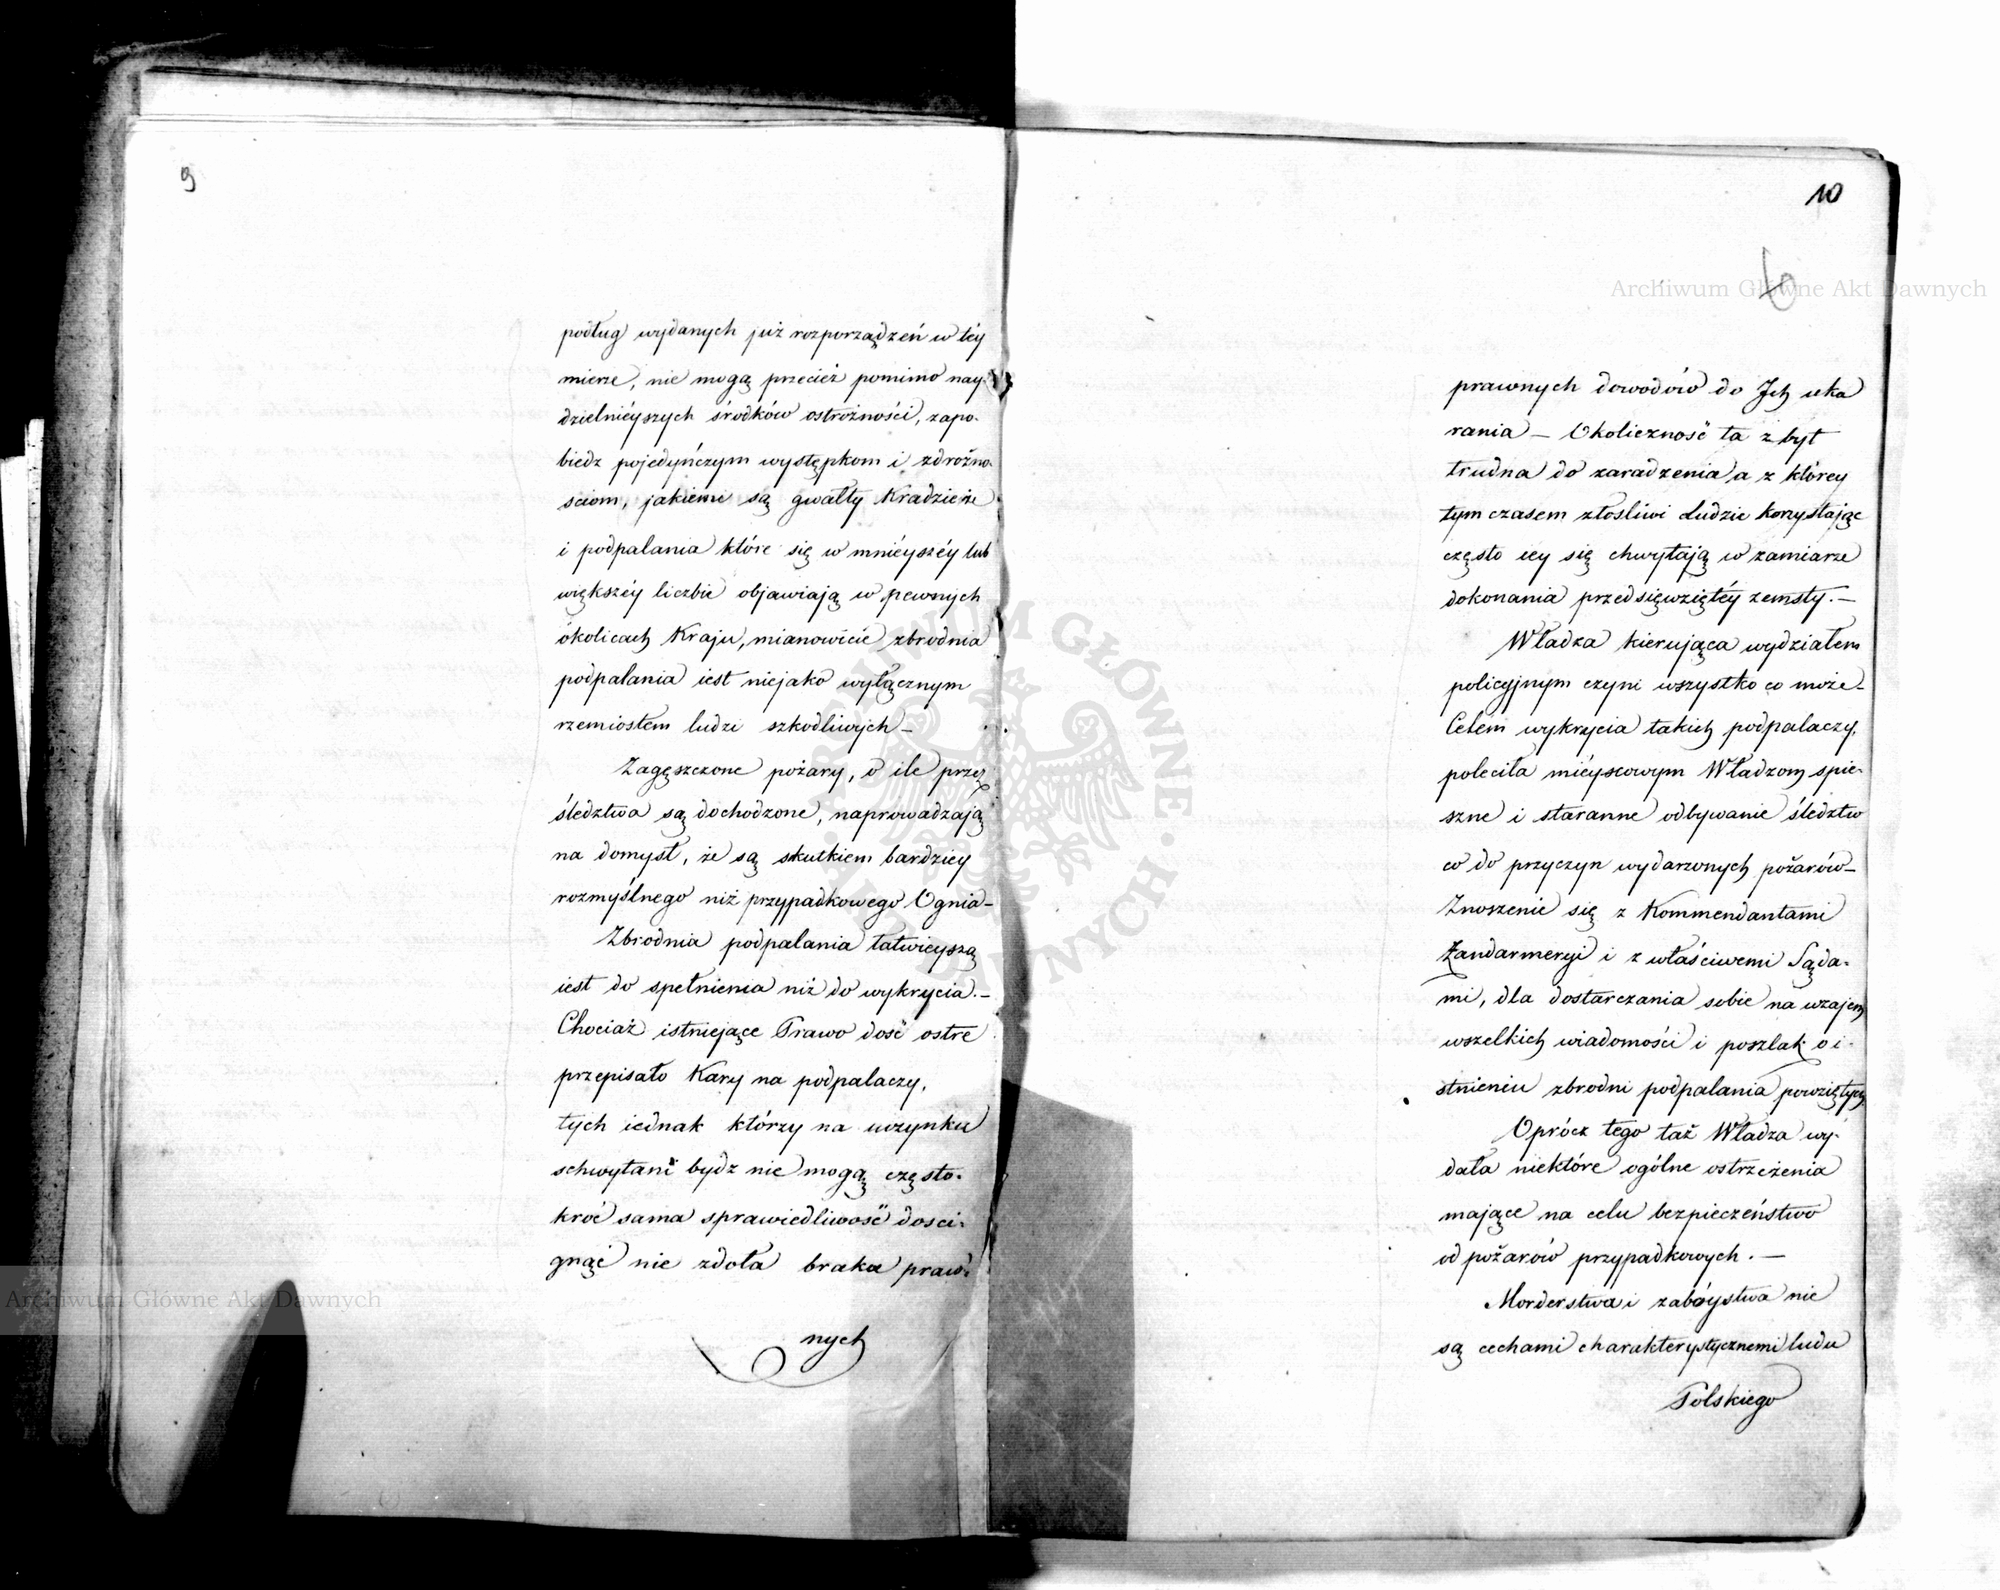 9
podług wydanych już rozporządzeń w téy
mierze, nie mogą przecież pomimo nay-
dzielniéyszych środków ostrożności, zapo-
biedz pojedyńczym występkom i zdrożno-
sciom, jakiemi są gwałty Kradzieże
i podpalania które się w mniéyszéy lub
większéy liczbie objawiają w pewnych
okolicach Kraju, mianowicie zbrodnia
podpalania iest niejako wyłącznym
rzemiosłem ludzi szkodliwych —
Zagęszczone pożary, o ile przez
śledztwa są dochodzone, naprowadzają
na domysł, że są skutkiem bardziey
rozmyślnego niż przypadkowego Ognia —
Zbrodnia podpalania łatwieyszą
iest do spełnienia niż do wykrycia. —
Chociaż istniejące Prawo dość ostre
przepisało Kary na podpalaczy,
tych iednak którzy na uczynku
schwytani bydz nie mogą często-
kroć sama sprawiedliwość dosci-
gnąć nie zdoła braku praw-
nych
10
6
prawnych dowodów do Jch uka
rania — Okoliczność ta zbyt
trudna do zaradzenia a z którey
tym czasem złośliwi Ludzie korzystając
często iey się chwytają w zamiarze
dokonania przedsięwziętéy zemsty. —
Władza kierująca wydziałem
policyjnym czyni wszystko co może —
Celem wykrycia takich podpalaczy,
poleciła miéyscowym Władzom spie-
szne i staranne odbywanie śledztw
co do przyczyn wydarzonych pożarów —
Znoszenie się z Kommendantami
Żandarmeryi i z właściwemi Sąda-
mi, dla dostarczania sobie na wzajem
wszelkich wiadomości i poszlak o i-
stnieniu zbrodni podpalania powziętych
Oprócz tego taż Władza wy-
dała niektóre ogólne ostrzeżenia
mające na celu bezpieczeństwo
od pożarów przypadkowych. —
Morderstwa i zabóystwa nie
są cechami charakterystycznemi ludu
Polskiego
Archiwum Główne Akt Dawnych
Archiwum Główne Akt Dawnych
ARCHIWUM GŁÓWNE • AKT DAWNYCH •